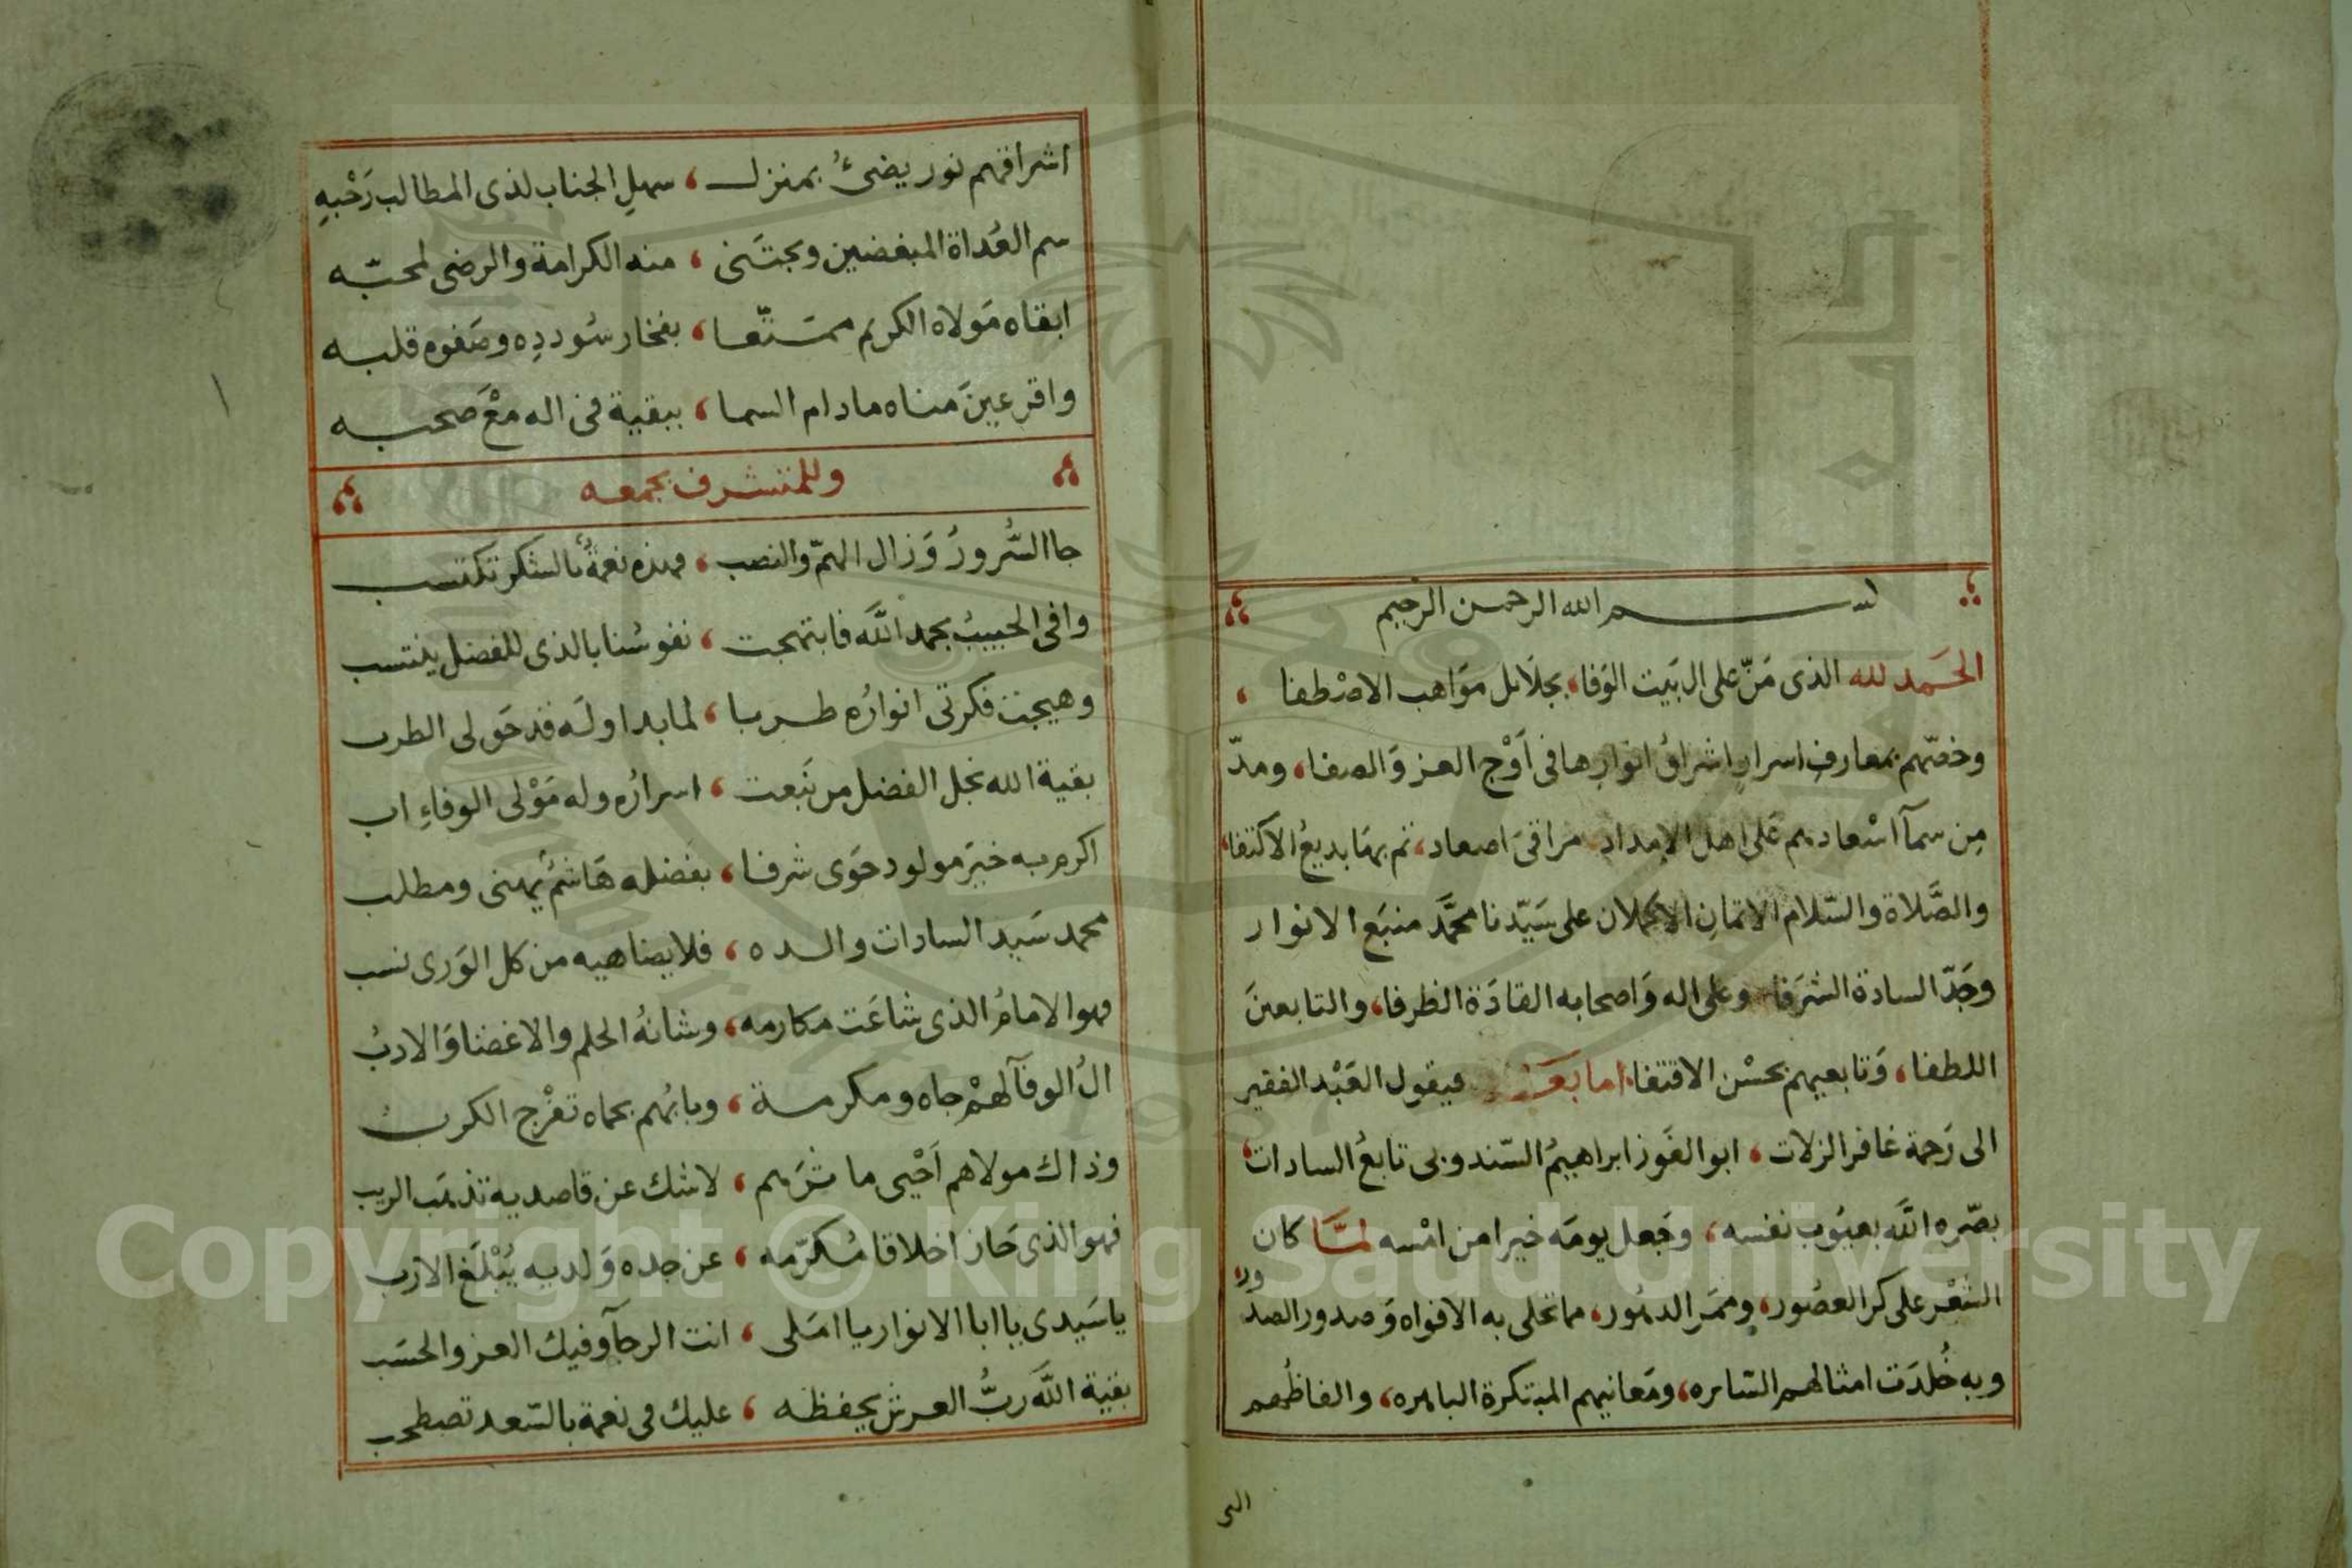 بســـم الله الرحمن الرحيم
الحَمد لله الذى مَنّ على ال بَيت الوَفا، بجلَايل مَوَاهب الاصْطفا ،
وخصّهم بمعارف اسرارٍ اشراقُ انوارِها فى اَوْج العز وَالصفا، ومدّ
مِن سمآ اسْعادهم عَلى اهل الامدادِ مراقىَ اصعاد، تم بهَا بديعُ الاكتفا،
والصَّلاة والسّلام الاتمانِ الاكملان على سَيّدنا محمَّد منبَع الانوار
وجَدّ السادة الشرَفا وعلى اله وَاصحابه القادَة الظرفا، والتابعينَ
اللطفا، وَتابعيهم بحسْن الاقتفا، اما بَعَد فيقول العَبْد الفقير
الى رَحمة غافر الزلات ، ابو الفَوز ابراهيمُ السّندوبى تابعُ السادات،
بصّره اللَّه بعيُوب نفسه، وجَعل يومَه خيرا من امْسه لمَّا كان
الشعْر على كر العصُور، وممَر الدهُور، مما تحلى به الافواه وَصدور الصدُور
وبه خُلدَت امثالهم السّايره، ومَعانيهم المبتكرة الباهره، والفاظُهم
التى
اشراقهم نور يضىُٔ بمنزل ، سهلِ الجناب لذى المطالب رَحْبهِ
سم العُداة المبغضين ويجتَنى ، منه الكرامة والرضى لمحبّه
ابقاه مَولاه الكريم ممتَّعا ، بفخار سُوددِه وصَفوه قلبه
واقر عينَ مناه مادام السما ، ببقية فى اله معْ صَحبه
وللمتشرف بجمعه
جا السُّرورُ وَزال الهمّ والنصب ، فهذه نعمةٌ بالشكر تكتسب
وافى الحبيبُ بحمد اللَّه فابتهجت ، نفوسُنا بالذى للفضل ينتسب
وهيجت فكرتى انوارُه طربا ، لما بدا وله قد حَق لى الطرب
بقية الله نجل الفضل من نَبعت ، اسرارُه وله مَوْلى الوفاءِ اب
اكرم به خيرَ مولود حَوى شرفا ، بفضله هَاشمٌ يهنى ومطلب
محمد سَيد السادات والده ، فلا يضاهيه من كل الوَرى نسب
فهو الامامُ الذى شاعَت مكارمه، وشانهُ الحلم والاغضا وَالادبُ
الُ الوفآ لهمْ جاه ومكرمة ، وبابُهم بحماه تفرْج الكربُ
وذاك مولاهم اَحْيى ماثرَهم ، لاشك عن قاصديه تذهَب الريب
فهو الذى حَاز اخلاقا مُكرّمه ، عن جده وَلديه يُبْلَغ الارب
يا سَيدى يا ابا الانوار يا امَلى ، انت الرجآ وفيك العز والحسَب
بقية اللَّه رَبُّ العرش يحفظه ، عليك فى نعمة بالسّعد تصطحب
Copyright © King Saud University